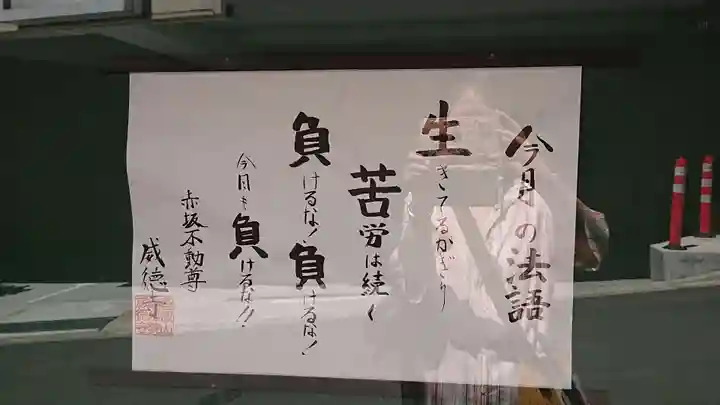 今月の法語
生きてるかぎり
苦労は続く
負けるな!負けるな!
今月も負けるな!!
赤坂不動尊
威徳寺